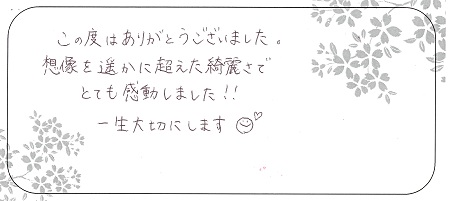 この度はありがとうございました。
想像を遥かに超えた綺麗さで
とても感動しました!!
一生大切にします